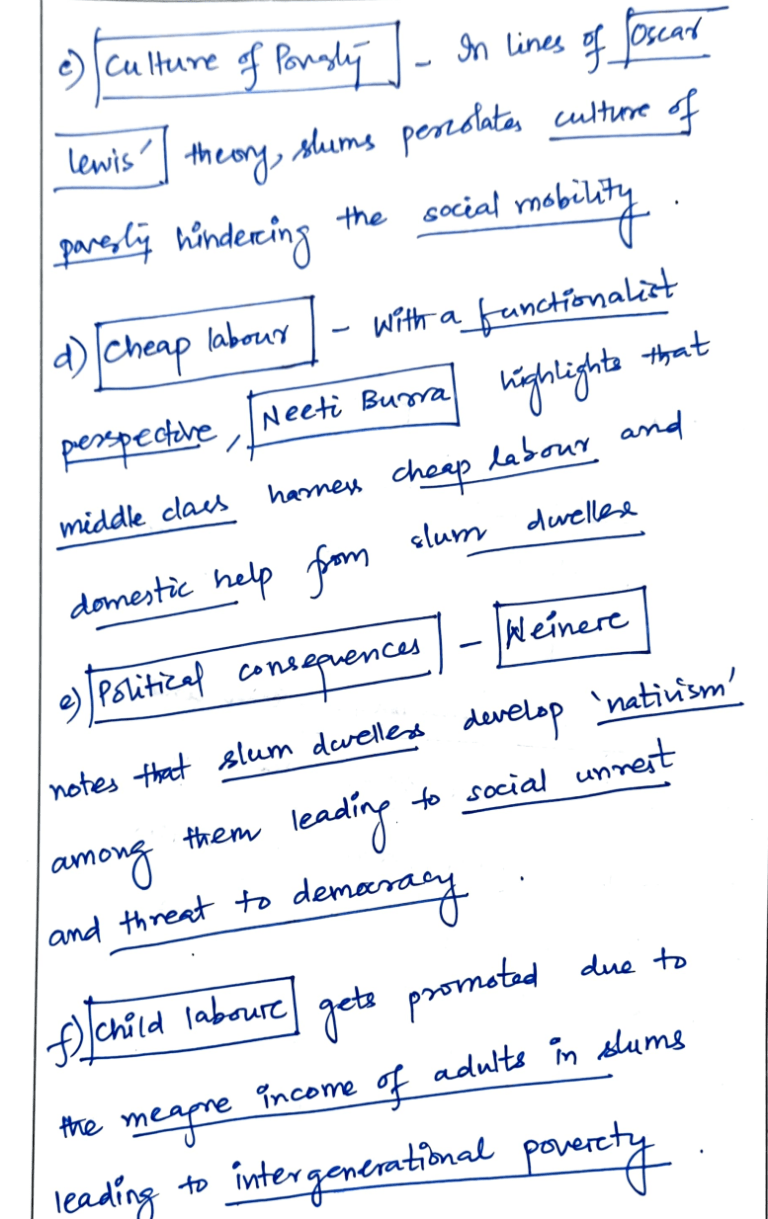 c) Culture of Poverty - In lines of Oscar
Lewis' theory, slums percolates culture of
poverty hindering the social mobility.
d) Cheap labour - With a functionalist
perspective, Neeti Burra highlights that
middle class harness cheap labour and
domestic help from slum dwellers
e) Political consequences - Weiner
notes that slum dwellers develop 'nativism'
among them leading to social unrest
and threat to democracy.
f) Child labour gets promoted due to
the meagre income of adults in slums
leading to intergenerational poverty.